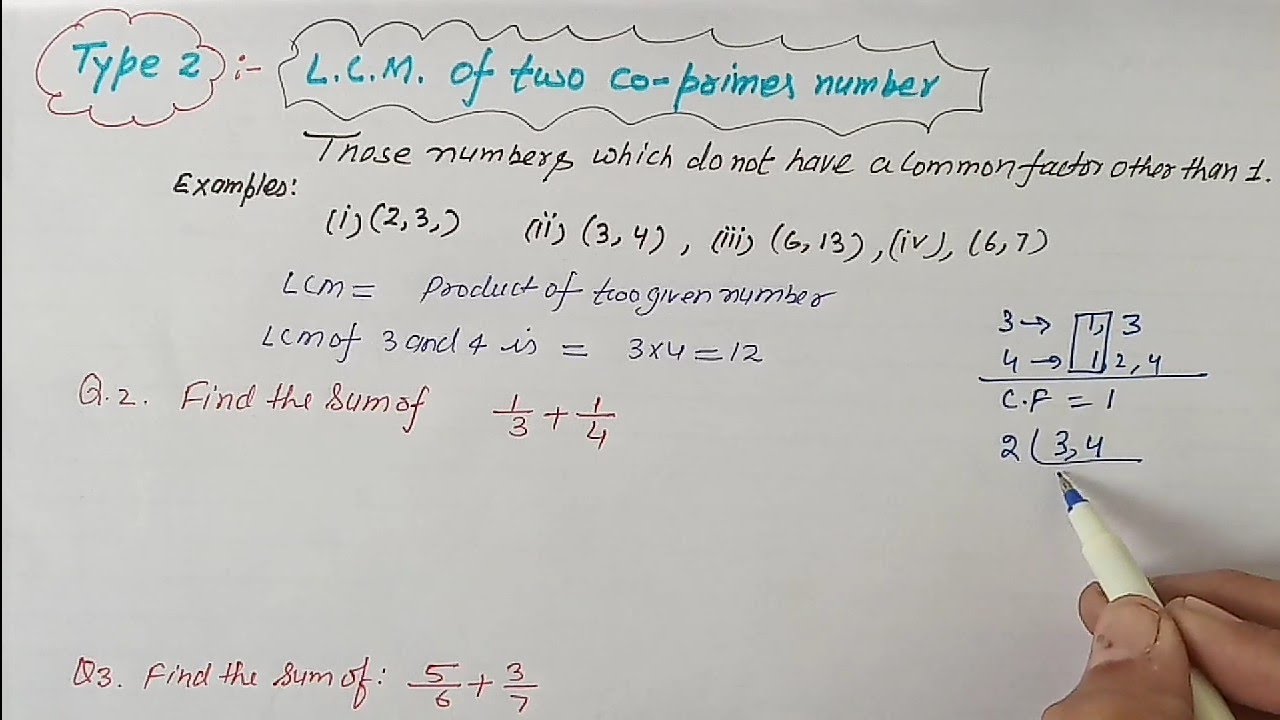 Type 2 :- L.C.M. of two co-primes number
Those numbers which do not have a common factor other than 1.
Examples:
(i) (2,3,) (ii) (3,4), (iii) (6,13), (iv), (6,7)
LCM = Product of two given number
LCM of 3 and 4 is = 3×4=12
3→ 1, 3
4→ 1, 2, 4
C.F = 1
2 ( 3,4
Q.2. Find the Sum of 1/3 + 1/4
Q3. Find the Sum of: 5/6 + 3/7